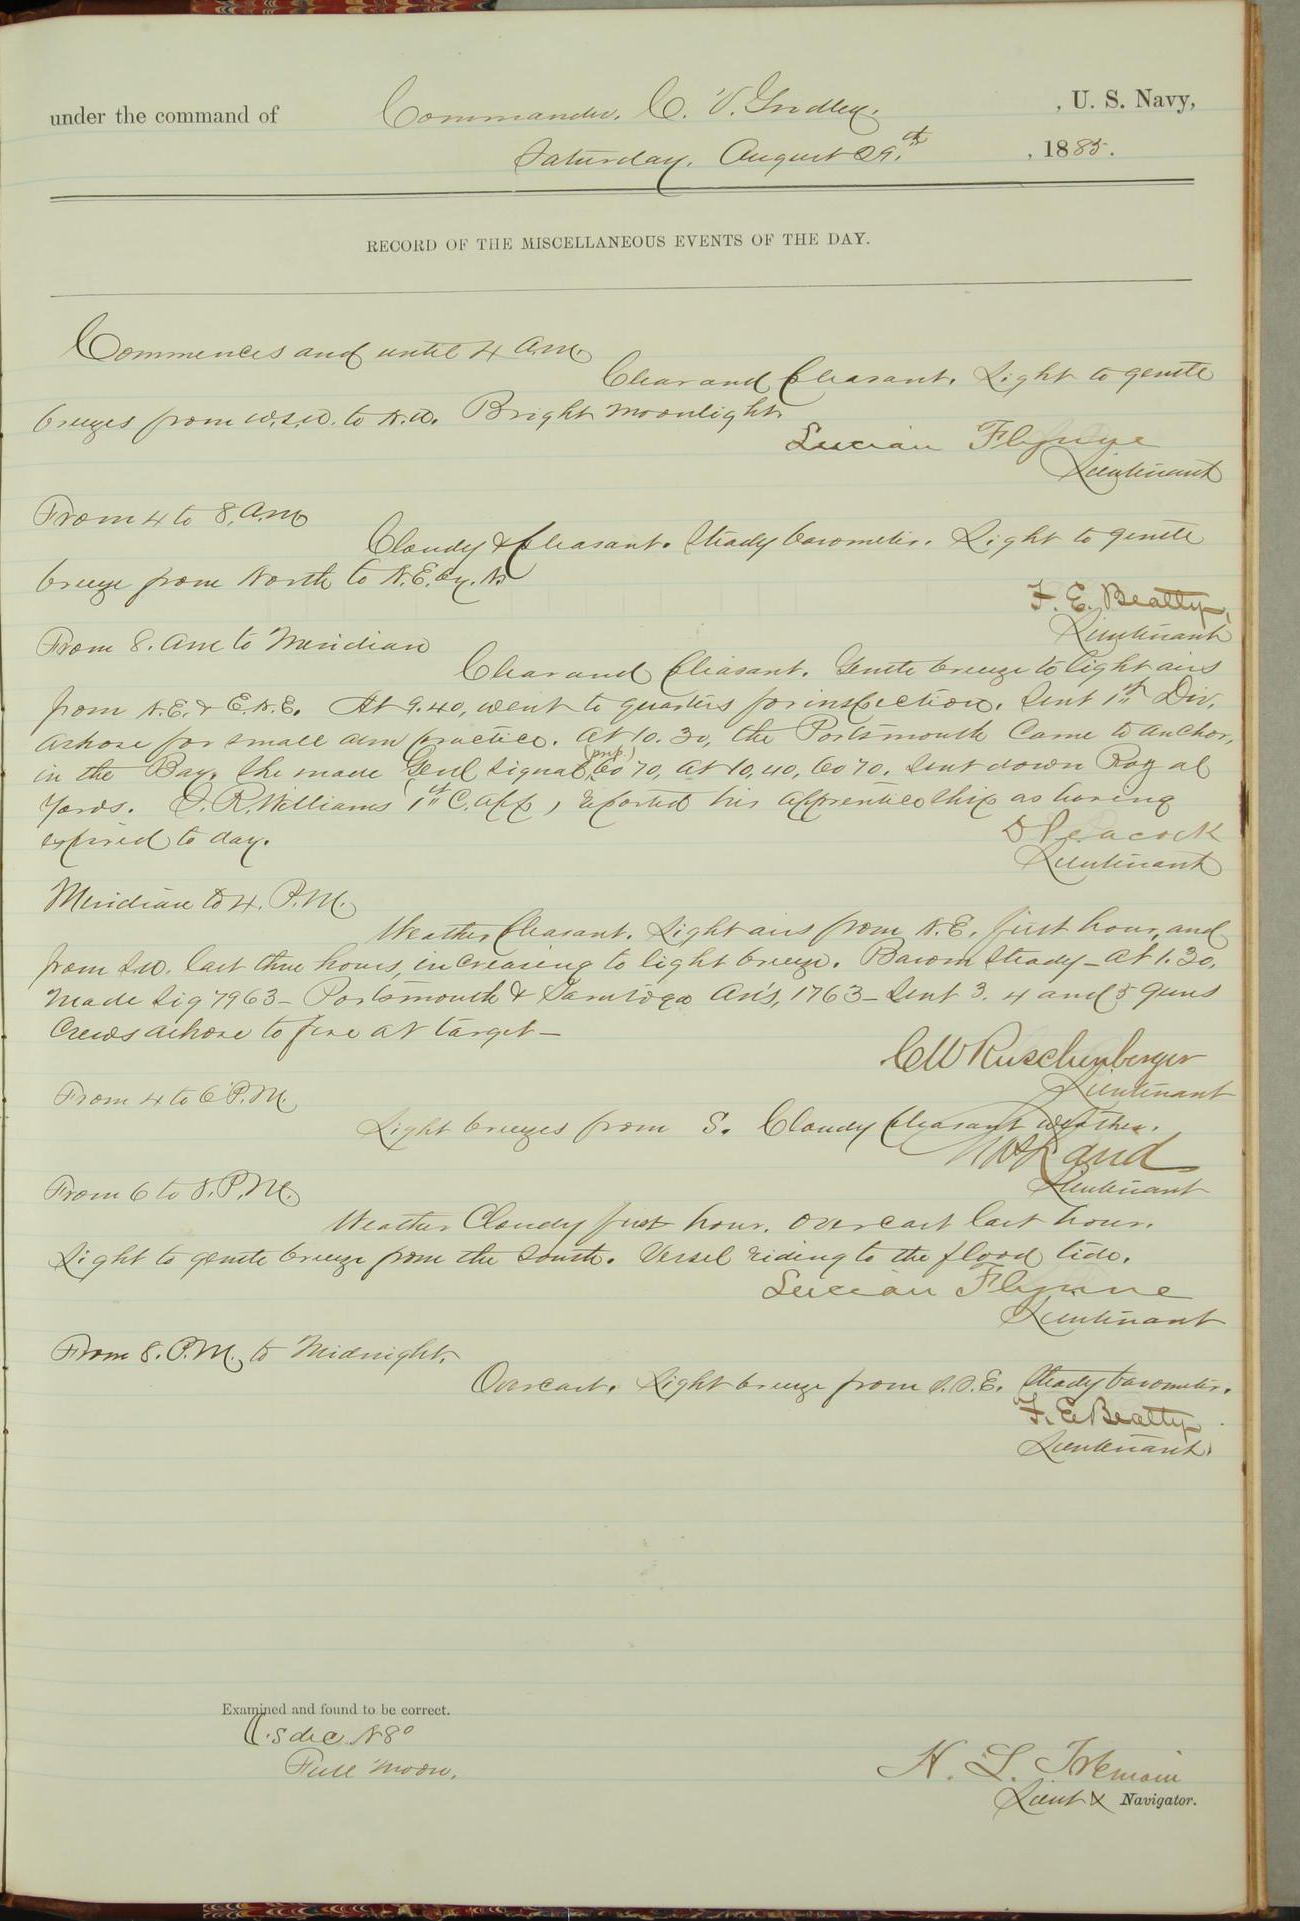 under the command of Commander. C. V. Gridley. , U. S. Navy,
Saturday, August 29th , 1885.
RECORD OF THE MISCELLANEOUS EVENTS OF THE DAY.
Commences and until 4 A.M.
Clear and pleasant. Light to gentle
breezes from W.S.W. to N.W. Bright moonlight.
Lucian Flynne
Lieutenant
From 4 to 8. A.M.
Cloudy & pleasant. Steady barometer. Light to gentle
breeze from North to N.E. by. N.
F. E. Beatty,
Lieutenant
From 8. AM to Meridian
Clear and pleasant. Gentle breeze to light airs
from N.E. & E.N.E. At 9.40, went to quarters for inspection. Sent 1st Div.
ashore for small arm practice. At 10.30, the Portsmouth came to anchor,
in the Bay. She made Genl Signal (prep.) 6070, at 10,40, 6070. Sent down Royal
yards. R. Williams (1st C. App) reported his apprenticeship as having
expired to day.
D Peacock
Lieutenant
Meridian to 4. P.M.
Weather pleasant. Light airs from N.E. first hour, and
from S.W. last three hours, increasing to light breeze. Barom steady – At 1.30,
made Sig 7963 – Portsmouth & Saratoga Ans, 1763 – Sent 3. 4 and 5 guns
crews ashore to fire at target –
C W Ruschenberger
Lieutenant
From 4 to 6 P.M.
Light breezes from S. Cloudy pleasant weather.
Rand
Lieutenant
From 6 to 8. P.M.
Weather Cloudy first hour. Overcast last hour.
Light to gentle breeze from the South. Vessel riding to the flood tide.
Lucian Flynne
Lieutenant
From 8. P.M. to Midnight.
Overcast. Light breeze from S.S.E. Steady barometer.
F. E. Beatty
Lieutenant.
Examined and found to be correct.
dec N 8°
Full moon.
H. L. Tremain
Lieut & Navigator.